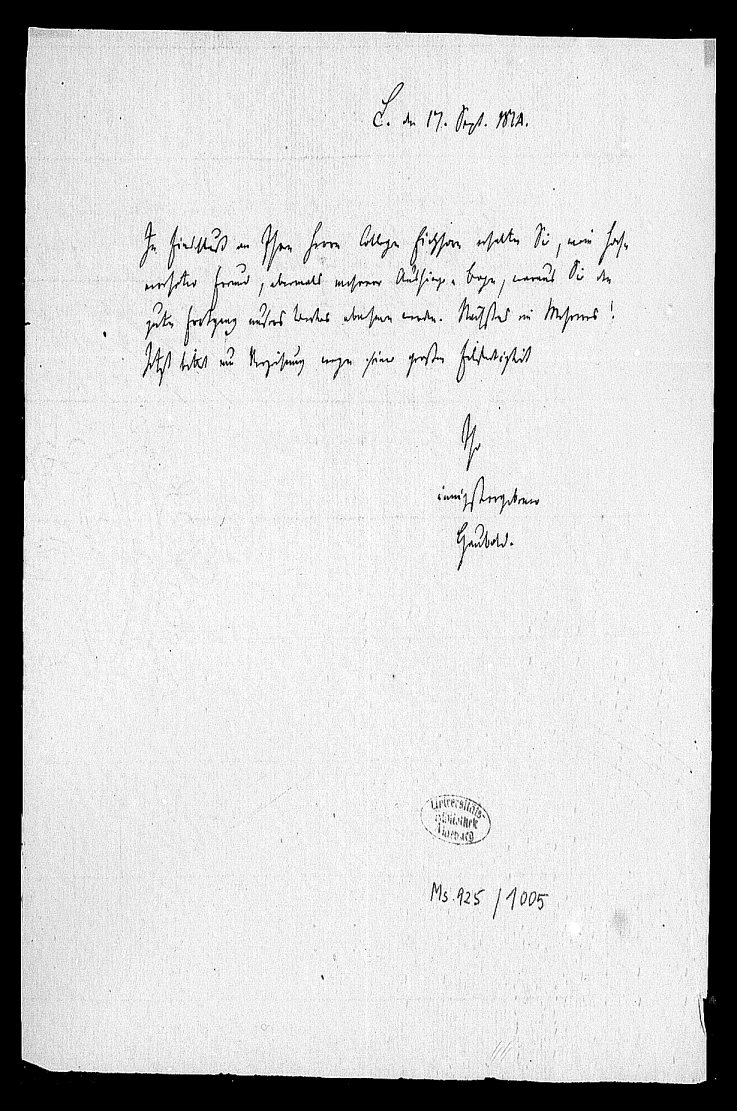 L. den 17. Sept. 1821.
Im Einschluß an Ihren Herrn Collegen Eichhorn erhalten Sie, mein hoch-
verehrter Freund, abermals mehrere Aushänge-Bogen, woraus Sie den
guten Fortgang unsers Werkes abnehmen werden. Nächstens ein Mehreres!
Jetzt bittet um Verzeihung wegen seiner großen Eilfertigkeit
Ihr
innigstergebener
Haubold.
Universitäts-
Bibliothek
Marburg
Ms. 925 / 1005